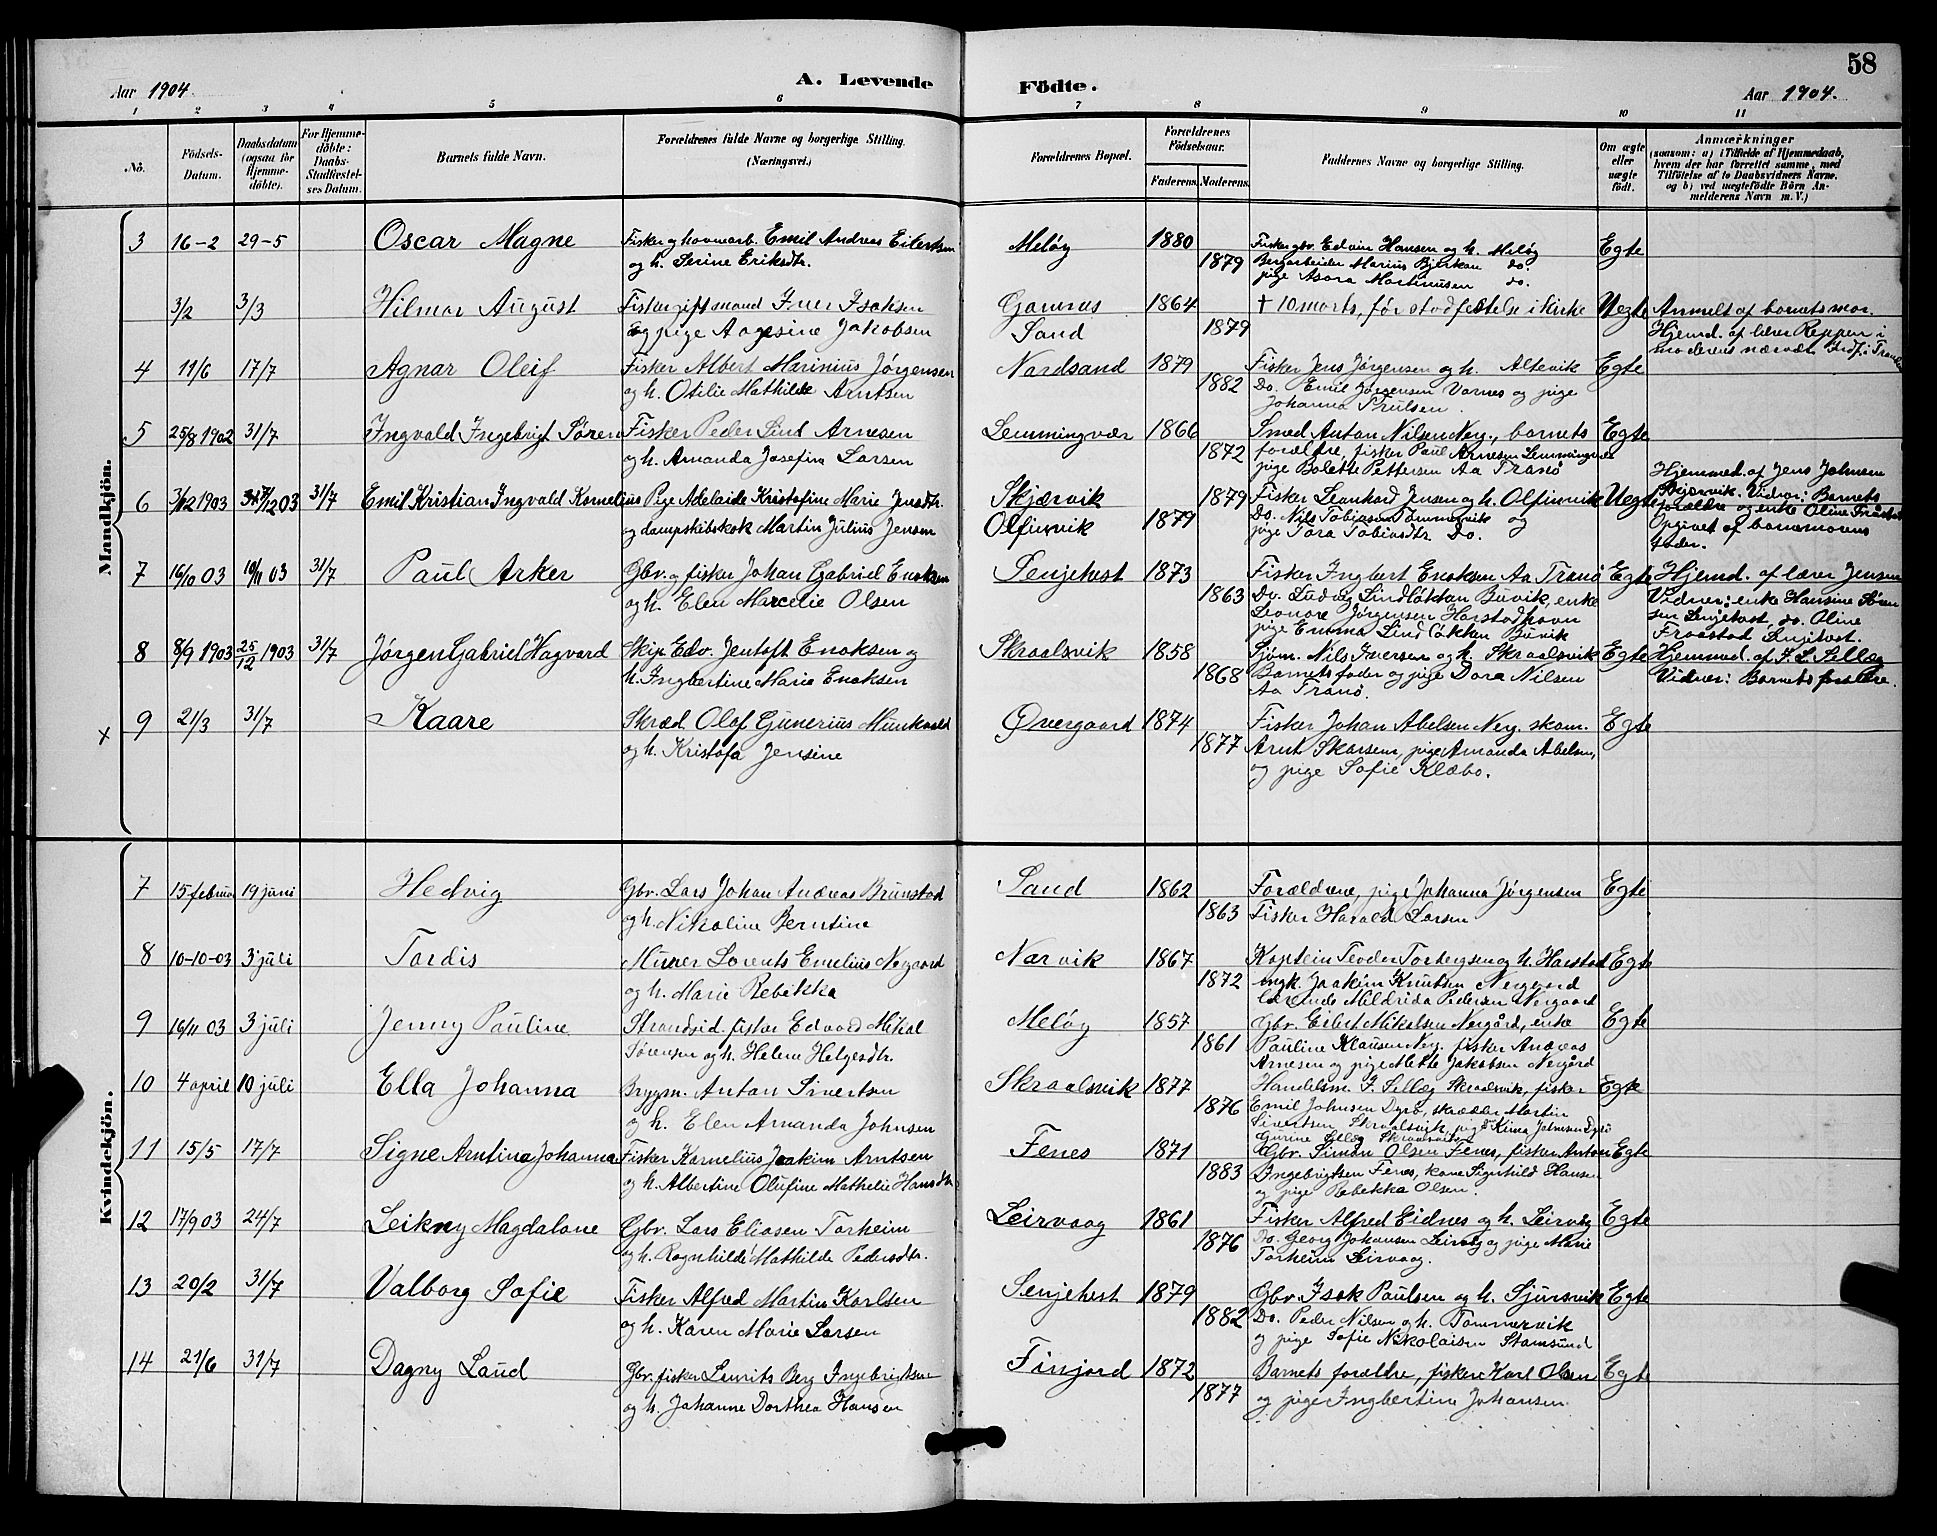 58
Aar 1904.
A. Levende Födte.
Aar 1904.
1 2 3 4 5 6 7 8 9 10 11
No.
Födsels-Datum.
Daabsdatum (ogsaa for Hjemme-döbte).
For Hjemme-döbte: Daabs-Stadfæstel-ses Datum.
Barnets fulde Navn.
Forældrenes fulde Navne og borgerlige Stilling. (Næringsvei.)
Forældrenes Bopæl.
Forældrenes Födselsaar.
Faderens. Moderens.
Faddernes Navne og borgerlige Stilling.
Om ægte eller uægte födt.
Anmærkninger
(saasom: a) i Tilfælde af Hjemmedaab,
hvem der har forrettet samme, med
Tilföielse af to Daabsvidners Navne.
og b) ved uægtefödte Börn An-
melderens Navn m. V.)
Mandkjön.
3 16-2 29-5 Oscar Magne Fisker og havnearb. Emil Andreas Eilertsen Meløy 1880 Fisker gbr. Edvin Hansen og h. Meløy Egte
og h. Serine Eriksdtr. 1879 Bergarbeider Marius Bjerkan do.
pige Asora Martinusen do.
3/2 3/3 Hilmar August Fisker gift mand Iver Isaksen 1864 † 10 marts, før stadfæstelse i kirke Uegte Anmelt af barnets mor.
og pige Aagesine Jakobsen Sand 1879 Hjemd. af lærer Reppen i
moderens nærvær
4 11/6 17/7 Agnar Oleif Fisker Albert Marinius Jørgensen Nordsand 1879 Fisker Jens Jørgensen og h. Altevik Egte
og h. Otilie Mathilde Arntsen 1882 Do. Emil Jørgensen Varnes og pige
Johanna
5 25/8 1902 31/7 Ingvald Ingebrigt Søren Fisker Peder Lind Arnesen Lemmingvær 1866 Smed Anton Nilsen Neg., barnets Egte
og h. Amanda Josefine Larsen 1872 forældre, fisker Paul Arnesen Lemmingvær
pige Bolette Pettersen Aa Tranø
6 3/12 1903 /12 03 31/7 Emil Kristian Ingvald Kornelius Pige Adelaide Kristofine Marie Jensdtr. Skjærvik 1879 Fisker Leonhard Jensen og h. Olfinsvik Uegte Hjemmed. af Jens Johnsen
og dampskibskok Martin Julius Jensen Olfinsvik 1879 Do. Nils Tobiassen Tømmervik og Skjærvik. Vidner: Barnets
pige Tora Tobiasdtr Do. forældre og enke Oline
Opgivet af barnemorens
fader.
7 16/10 03 10/11 03 31/7 Paul Arker Gbr. og fisker Johan Gabriel Enoksen Senjehest 1873 Fisker Ingbert Enoksen Aa Tranø Egte Hjemd. af lærer Jensen
og h. Elen Marcelie Olsen 1863 Do. Ludvig Lind Løkken Buvik, enke Vidner: enke Hansine Søren
Leonore Jørgensen Harstadhavn sen Senjehest, do. Oline
pige Emma Lind Løkken Buvik Fraastad Senjehest.
8 8/9 1903 25/12 1903 31/7 Jørgen Gabriel Hagvard Skip. Edv. Jentoft Enoksen og Skraalsvik 1858 Sjøm. Nils Iversen og h. Skraalsvik Egte Hjemmed. af I. L. Sellæg
h. Ingbertine Marie Enoksen 1868 Barnets fader og pige Dora Nilsen Vidner: Barnets forældre.
Aa Tranø.
x 9 21/3 31/7 Kaare Skræd. Olaf Gunerius Munkvold Overgaard 1874 Fisker Johan Abelsen Neg. skom. Egte
og h. Kristofa Jensine 1877 Arnt Skarsem, pige Amanda Abelsen,
og pige Sofie Klæbo.
Kvindekjön.
7 15 februar 19 juni Hedvig Gbr. Lars Johan Andreas Brunstad Sand 1862 Forældrene, pige Johanna Jørgensen Egte
og h. Nikoline Berntine 1863 Fisker Harald Larsen
8 10-10-03 3 juli Tordis Murer Lorents Emelius Nergaard Narvik 1867 Kaptein Teodor Torbergsen og h. Harstad Egte
og h. Marie Rebekka 1872 ungk. Joakim Knutsen Nergaard
lærerinde Mildrida Pedersen Nergaard
9 16/11 03 3 juli Jenny Pauline Strandsid. fisker Edvard Mikal Meløy 1857 Gbr. Eilert Mikalsen Nergård, enke Egte
Sørensen og h. Helene Helgesdtr. 1861 Pauline Klausen Neg. fisker Andreas
Arnesen og pige Mette Jakobsen Nergård
10 4 april 10 juli Ella Johanna Brygm. Anton Sivertsen Skraalsvik 1877 Handelsm. I. Sellæg Skraalsvik, fisker Egte
og h. Elen Amanda Johnsen 1876 Emil Johnsen Dyrø, skrædder Martin
Sivertsen Skraalsvik, pige Kima Johnsen Dyrø
Gurine Sellæg Skraalsvik
11 15/5 17/7 Signe Arntine Johanna Fisker Kornelius Joakim Arntsen Fenes 1871 Gbr. Simon Olsen Fenes, fisker Anton Egte
og h. Albertine Olufine Mathelie Hansdtr. 1883 Ingebrigtsen Fenes, kone Signhild Hansen
og pige Rebekka Olsen.
12 17/9 03 24/7 Leikny Magdalone Gbr. Lars Eliasen Torheim Leirvaag 1861 Fisker Alfred Eidnes og h. Leirvåg Egte
og h. Ragnhilde Mathilde Pedersdtr. 1876 Do. Georg Johansen Leirvåg og pige Marie
Torheim Leirvaag.
13 20/2 31/7 Valborg Sofie Fisker Alfred Martin Karlsen Senjehest 1879 Gbr. Isak Paulsen og h. Sjursvik Egte
og h. Karen Marie Larsen 1882 Do. Peder Nilsen og h. Tømmervik
og pige Sofie Nikolaisen Stamsund
14 21/6 31/7 Dagny Laud Gbr. fisker Lenrits Berg Ingebrigtsen Finjord 1872 Barnets forældre, fisker Karl Olsen Egte
og h. Johanne Dorthea Hansen 1877 og pige Ingbertine Johansen.